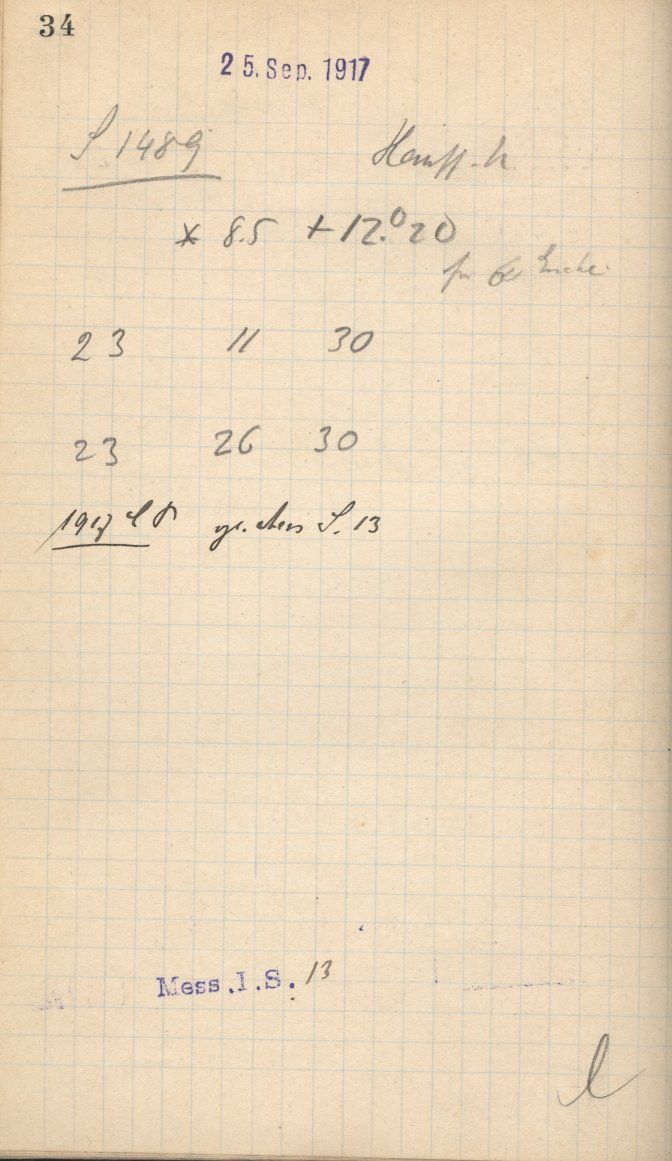 34
25. Sep. 1917
S 1489 Hauff-h
* 8.5 +12.° 20
für Encke
23 11 30
23 26 30
1917 S. 13
Mess.I.S. 13